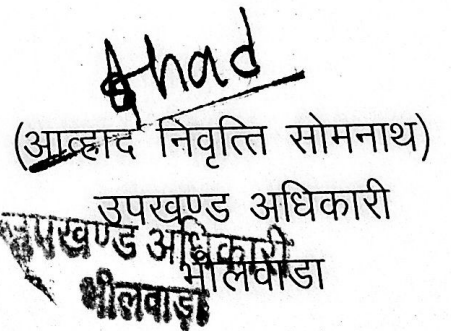 Ahad
(आव्हाद निवृत्ति सोमनाथ)
उपखण्ड अधिकारी
भीलवाडा
उपखण्ड अधिकारी
भीलवाड़ा